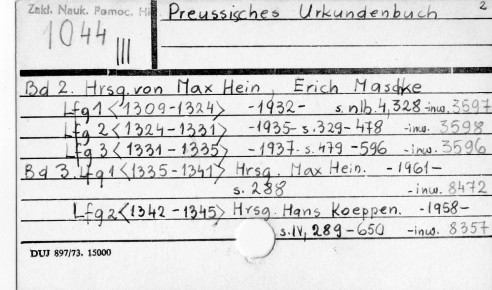 Zakł. Nauk. Pomoc. Hi
Preussisches Urkundenbuch
2
1044
III
Bd 2. Hrsg. von Max Hein, Erich Maschke
Lfg 1 <1309-1324> -1932- s. nlb. 4, 328 -inw. 3597
Lfg 2 <1324-1331> -1935- s. 329-478 -inw. 3598
Lfg 3 <1331-1335> -1937- s. 479-596 -inw. 3596
Bd 3. Lfg 1 <1335-1341> Hrsg. Max Hein. -1961-
s. 288 -inw. 8472
Lfg 2 <1342-1345> Hrsg. Hans Koeppen. -1958-
s. IV, 289-650 -inw. 8357
DUJ 897/73. 15000